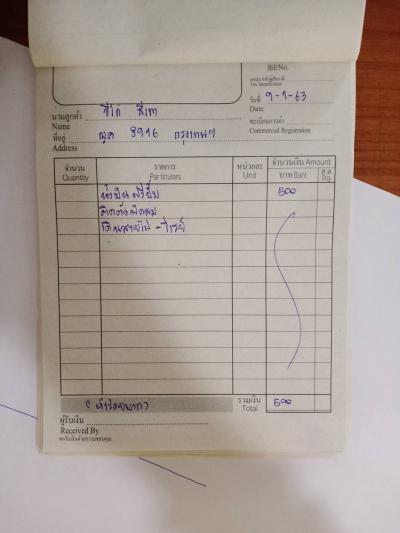 Bill No.
เลขประจำตัวผู้เสียภาษี
Tax Identification
วันที่ 9-1-63
Date
นามลูกค้า
Name
ทะเบียนการค้า
Commercial Registration
ที่อยู่ 8916 กรุงเทพฯ
Address
จำนวน รายการ หน่วยละ จำนวนเงิน Amount
Quantity Particulars Unit บาท Baht ส.ต. Stg.
500
ติดตั้งพัดลม
เดินสายไฟ -
รวมเงิน 500
Total
(ห้าร้อยบาท)
ผู้รับเงิน
Received By
ขอรับเงินด้วยความขอบคุณ